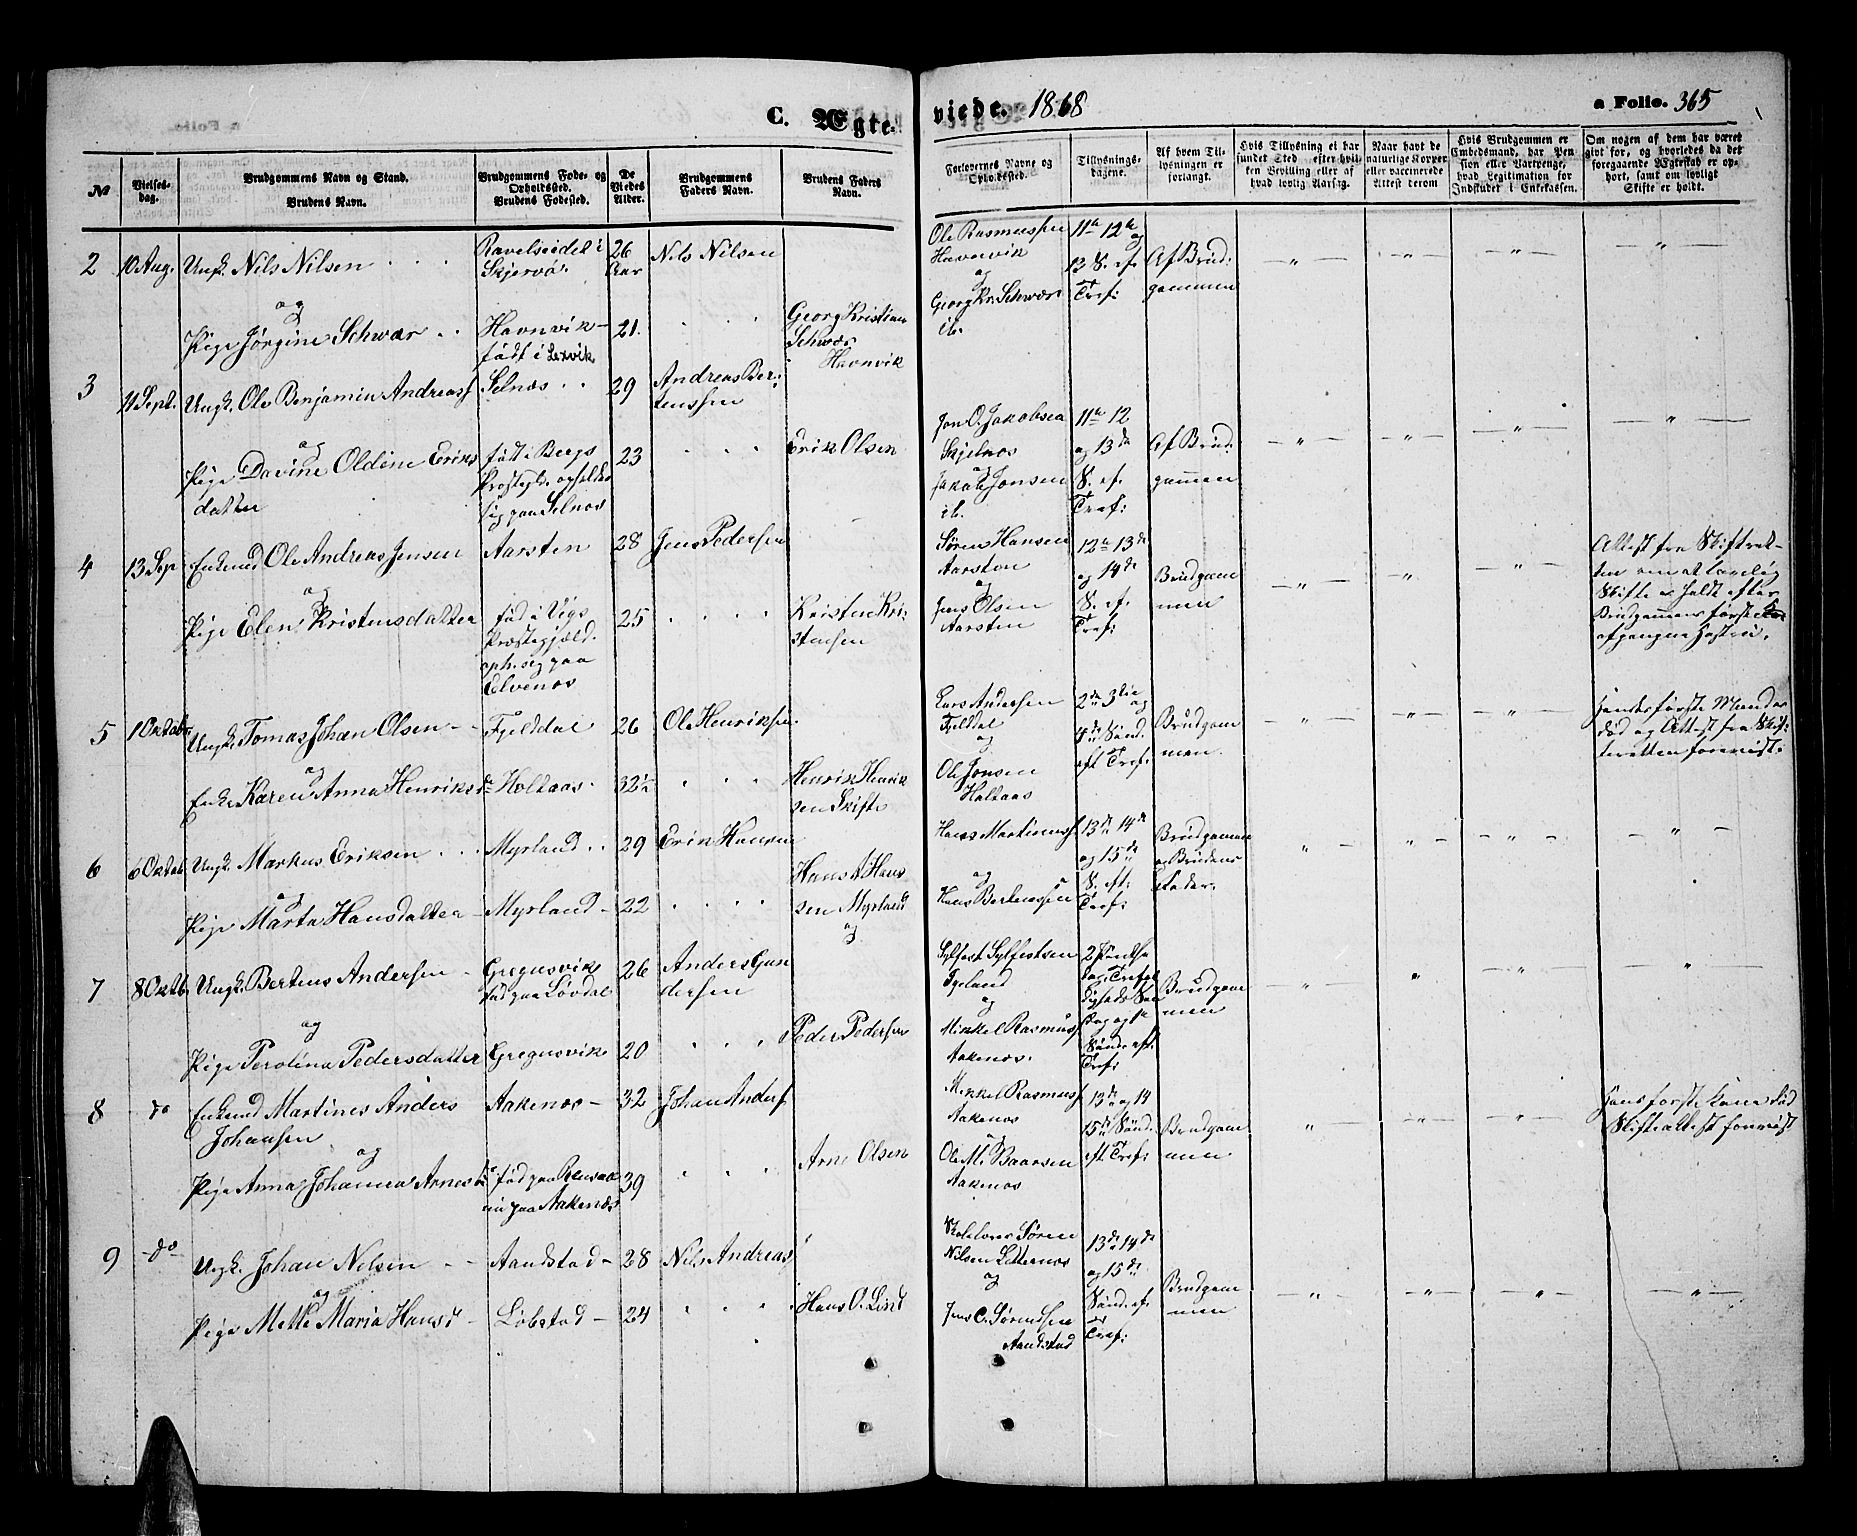 C. Ægte
viede. 1868
a Folio. 365
No
Vielses-
dag.
Brudgommens Navn og Stand.
Brudens Navn.
Brudgommens Føde- og
Opholdssted.
Brudens Fødested.
De
Viedes
Alder.
Brudgommens
Faders Navn.
Brudens Faders
Navn.
Forlovernes Navne og
Opholdssted.
Tillysnings-
dagene.
Af hvem Til-
lysningen er
forlangt.
Hvis Tillysning ei har
fundet Sted, efter hvil-
ken Bevilling eller af
hvad lovlig Aarsag.
Naar havt de
naturlige Kopper
eller vaccinerede
Attest derom
Hvis Brudgommen er
Embedsmand, har Pen-
sion eller Vartpenge,
hvad Legitimation for
Indskudet i Enkekassen.
Om nogen af dem har været
gift før, og hvorledes da det
foregaaende Ægteskab er op-
hørt, samt om lovligt
Skifte er holdt.
2
10 Aug.
Ungk. Nils Nilsen
og
Pige Jørgine Schwær
Ravelseidet i
Skjervø
Havnvik
født i Lexvik
26
Aar
21.
Nils Nilsen
Georg Kristian
Schwær
Havnvik
Ole Rasmussen
Havnvik
og
Georg Kr. Schwær
ib.
11te 12te og
13 S. ef.
Tref:
Af Brud:
gommen
3
11 Sept.
Ungk. Ole Benjamin Andreass
og
Pige Davine Oldine Eriks
datter
Selnæs
født i Bergs
Præstegld. opholder
sig paa Selnæs
29
23
Andreas Ber-
tenssen
Erik Olsen
Jon O. Jakobsen
Skjelnæs
og
Jakob Jonsen
ib.
11te 12
og 13de
S. ef.
Tref:
Af Brud:
gommen
4
13 Sep
Enkemd Ole Andreas Jensen
og
Pige Elen Kristensdatter
Aarsten
fød i Vigs
Præstegjæld.
oph. sig paa
Elvenæs
28
25
Jens Pedersen
Kristen Kri-
stensen
Søren Hansen
Aarsten
og
Jens Olsen
Aarsten
12te 13de
og 14de
S. ef.
Tref:
Brudgom
men
Attest fra Skifteret-
ten om at lovlig
Skifte er holdt efter
Brudgommens første
afgangne Hustru.
5
1 Oktobr
Ungk. Tomas Johan Olsen
og
Enke Karen Anna Henriksd
Fjelddal
Holtaas
26
32½
Ole Henriksen
Henrik Henrik
sen Skifte
Lars Andersen
Fjeldal
og
Ole Jonsen
Holtaas
2den 3die og
4de Sønd.
eft Tref:
Brudgom
men.
Hendes første Mand er
død og Attest fra Skif-
teretten forevist.
6
6 Oktob.
Ungk. Markus Eriksen
og
Pige Marta Hansdatter
Myrland
Myrland
29
22
Erik Hansen
Hans A Hans
sen Myrland
og
Hans Martinuss
og
Hans Bertenssen
13de 14de
og 15de
S. eft.
Tref:
Brudgommen
og Brudens
Fader.
7
8 Oktb.
Ungk. Bertens Andersen
og
Pige Perolina Pedersdatter
Gregusvik
fød paa Løvdal
Gregusvik
26
20
Anders Gun
dersen
Peder Pedersen
Sylfest Sylfestsen
og
Mikkel Rasmuss
Aakenæs.
Brudgom
men
8
do
Enkemd Martines Anders
Johansen
og
Pige Anna Johanna Arnesd
Aakenæs
fød paa Rensaa
nu paa Aakenæs
32
39
Johan Anders
Arne Olsen
Mikkel Rasmuss
Aakenæs
og
Ole M. Baarsen
Aakenæs
13de og 14
15de Sønd.
eft Tref:
Brudgom
men
Hans første Kone død
Skifteattest forevist
9
do
Ungk. Johan Nilsen
og
Pige Mette Maria Hansd
Aandstad
Løbstad
28
24
Nils Andreas
Hans O. Lind
Skolelærer Søren
Nilsen
og
Jens C. Sørensen
Aandstad
13de 14de
og 15de
Sønd. ef.
Tref:
Brudgom
men